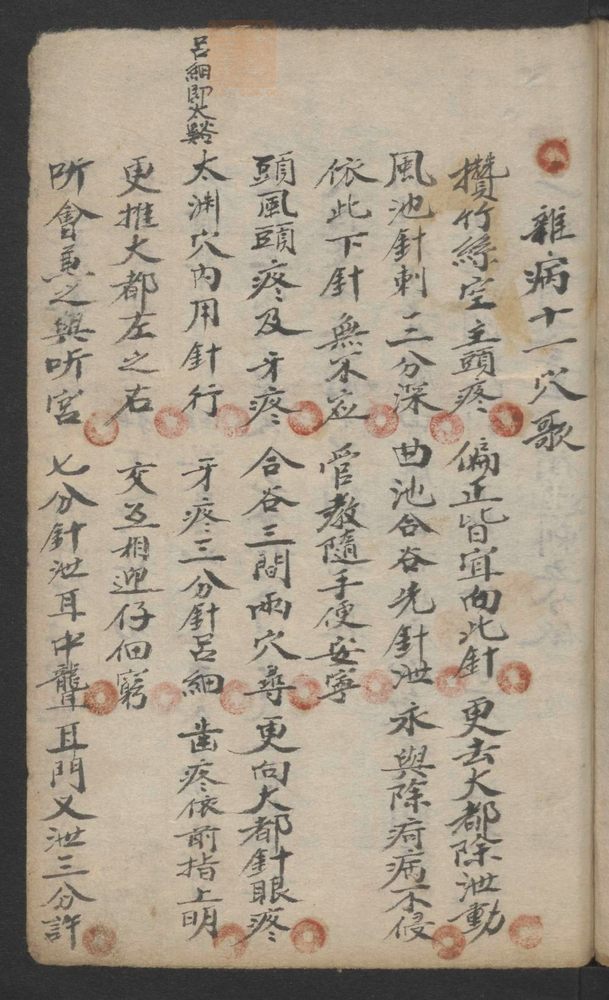 雜病十一穴歌
攢竹絲空主頭疼 偏正皆宜向此針 更去大都除泄動
風池針刺三分深 曲池合谷先針泄 永與除疴病不侵
依此下針無不应 管教隨手便安寧
頭風頭疼及牙疼 合谷三間兩穴尋 更向大都針眼疼
太渊穴內用針行 牙疼三分針呂細 齒疼依前指上明
呂細即太谿
更推大都左之右 交互相迎仔细窮
听會兼之與听宮 七分針泄耳中聾 耳門又泄三分許